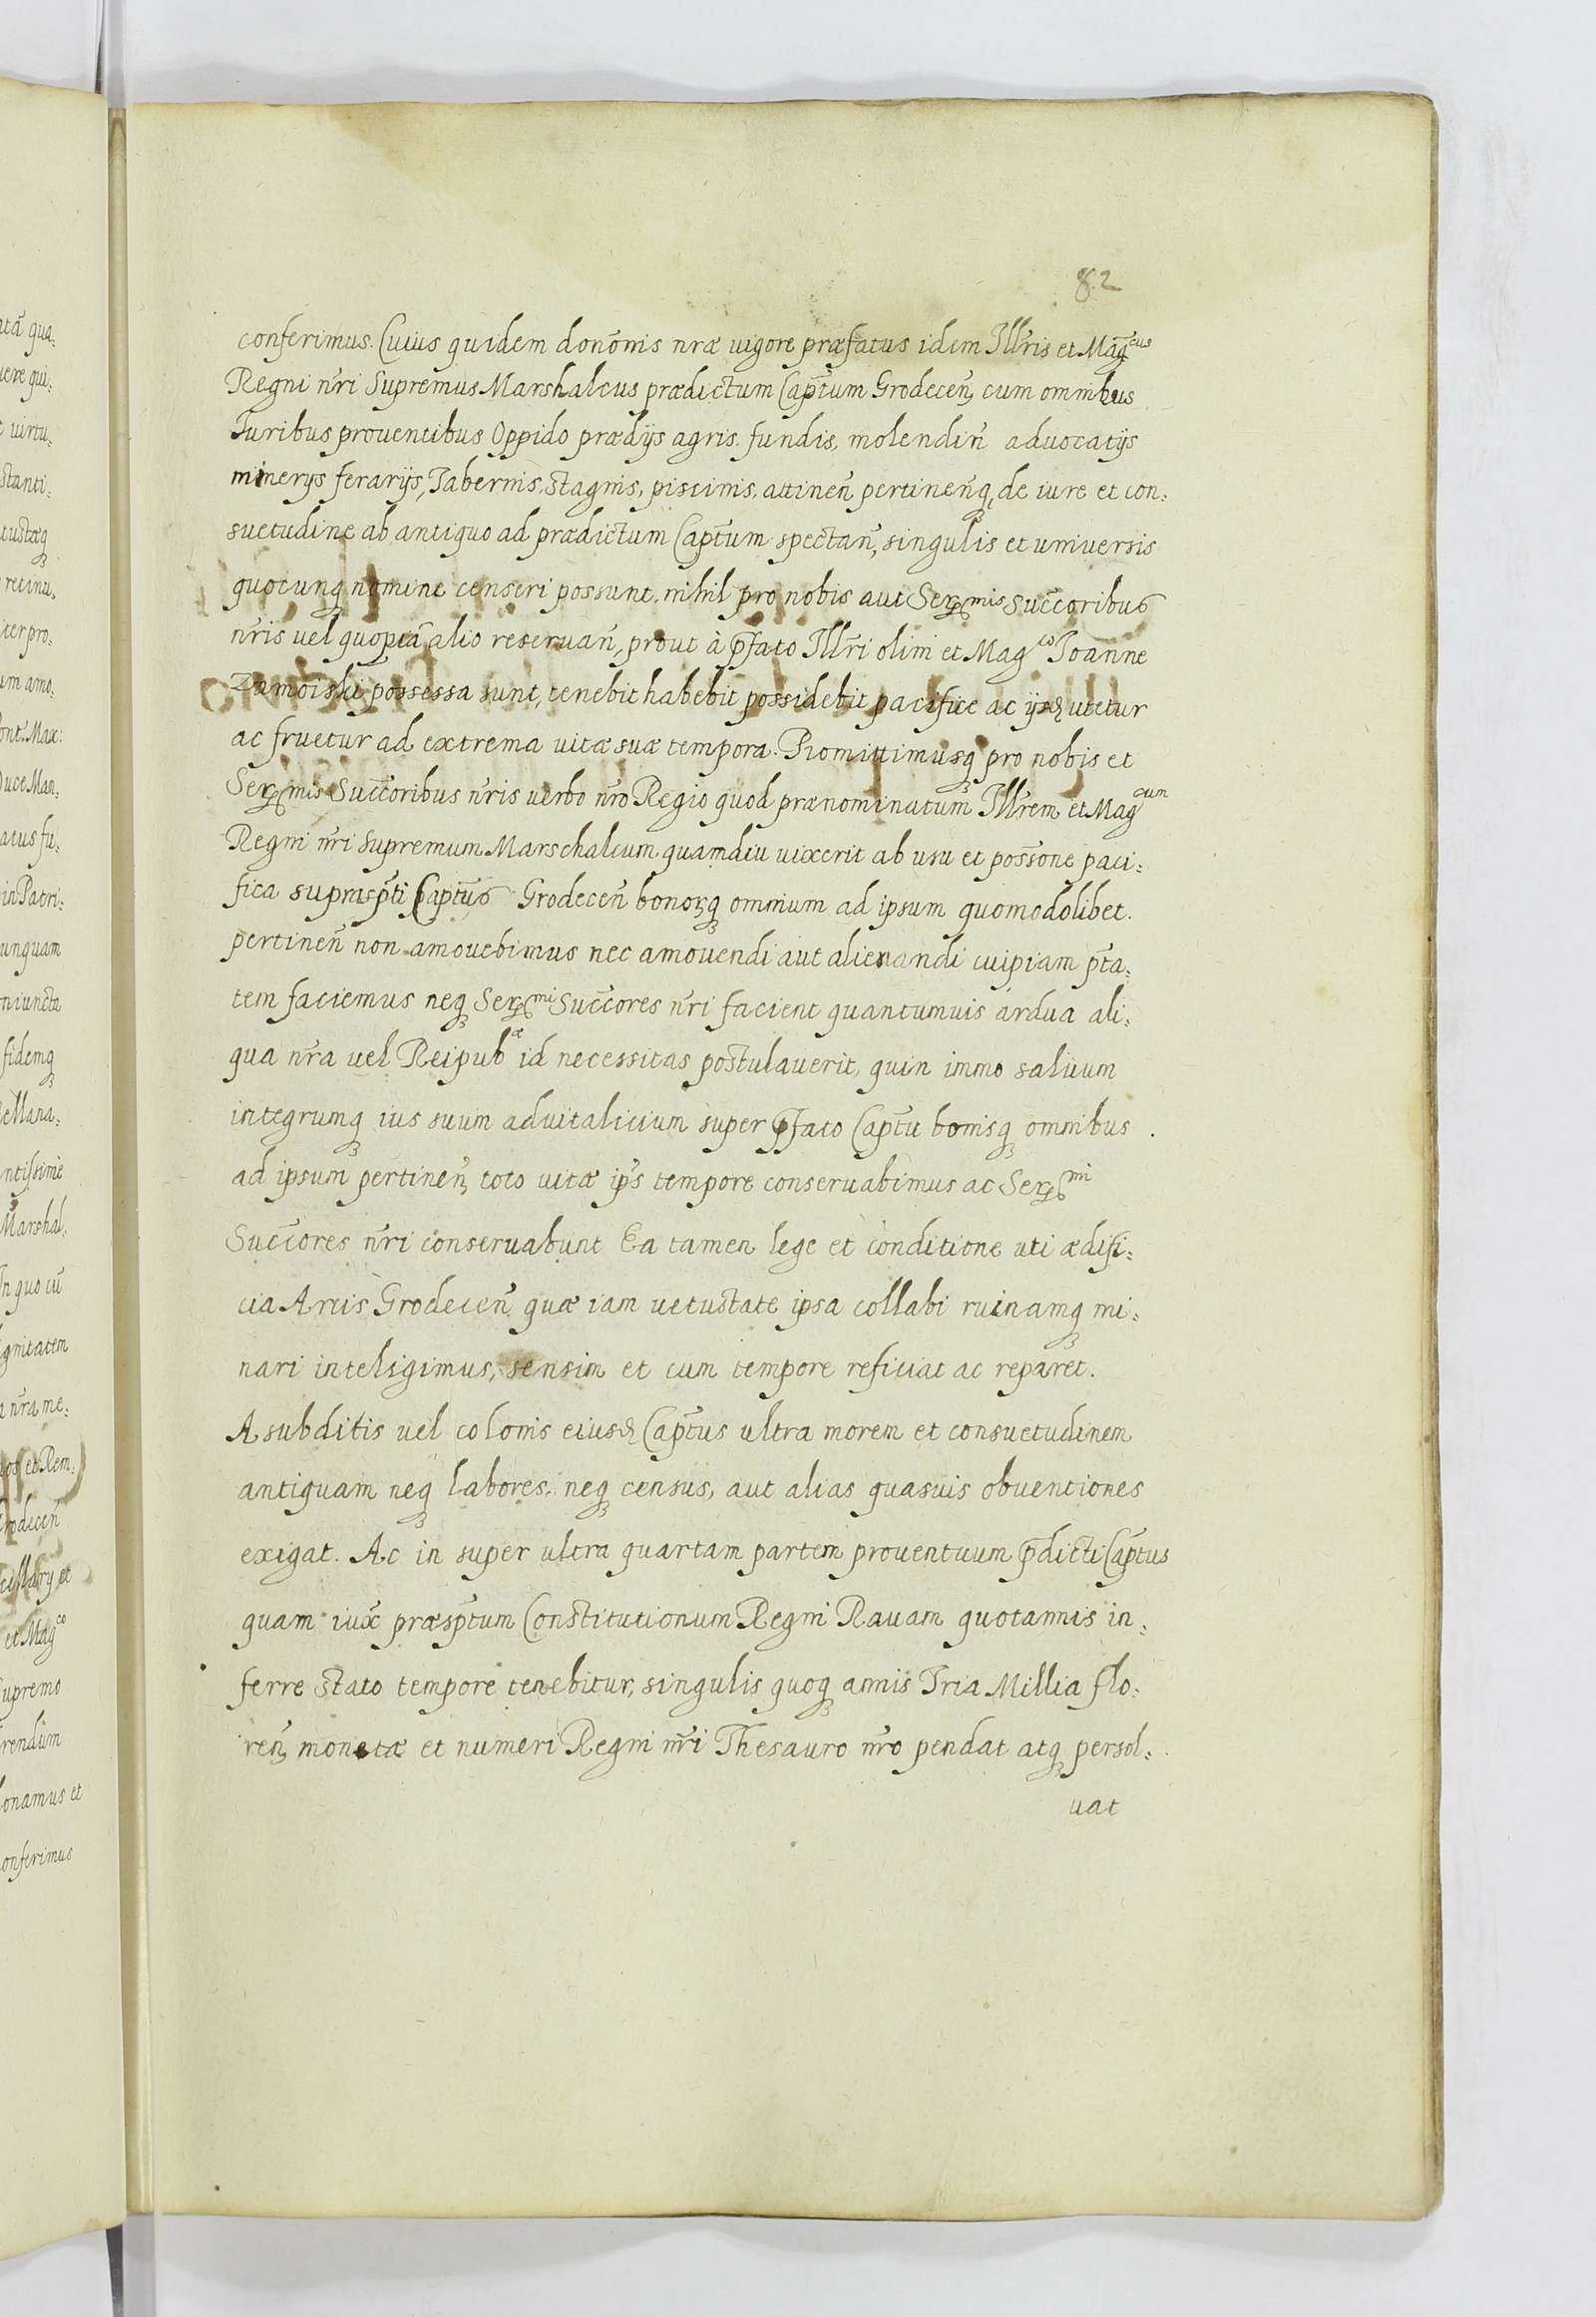 82
conferimus. Cuius quidem donõnis nræ uigore præfatus idem Illr̃is et Mag̃cus
Regni nr̃i Supremus Marshalcus prædictum Cap̃tum Grodeceñ cum omnibus
Iuribus prouentibus Oppido prædijs agris. fundis, molendiñ aduocatijs
minerys ferarijs, Tabernis, stagnis, piscinis, attineñ pertineñq̃ de iure et con,
suetudine ab antiquo ad prædictum Cap̃tum spectañ, singulis et uniuersis
quocunq̃ nomine censeri possunt. nihil pro nobis aut Sermis Succ̃oribus
nr̃is uel quopiã alio reseruañ, prout à p̃fato Illr̃i olim et Magco Ioanne
Zamoiski possessa sunt, tenebit habebit possidebit pacifice ac ijsd utetur
ac fruetur ad extrema uitæ suæ tempora. Promittimusq̃ pro nobis et
Sermis Succ̃oribus nr̃is uerbo nr̃o Regio quod prænominatum Illr̃em et Magcum
Regni nr̃i Supremum Marschalcum quamdiu uixerit ab usu et poss̃one paci,
fica suprasp̃ti Cap̃tus Grodeceñ bonorq̃ omnium ad ipsum quomodolibet.
pertineñ non amouebimus nec amouendi aut alienandi cuipiam p̃ta,
tem faciemus neq̃ Sermi Succ̃ores nr̃i facient quantumuis ardua ali,
qua nr̃a uel Reipubæ id necessitas postulauerit, quin immo saluum
integrumq̃ ius suum aduitalicium super p̃fato Cap̃tu bonisq̃ omnibus.
ad ipsum pertineñ toto uitæ ip̃s tempore conseruabimus ac Sermi
Succ̃ores nr̃i conseruabunt Ea tamen lege et conditione uti ædifi,
cia Arcis Grodeceñ quæ iam uetustate ipsa collabi ruinamq̃ mi,
nari inteligimus, sensim et cum tempore reficiat ac reparet.
A subditis uel colonis eiusd Cap̃tus ultra morem et consuetudinem
antiquam neq̃ labores, neq̃ census, aut alias quasuis obuentiones
exigat. Ac in super ultra quartam partem prouentuum p̃dicti Cap̃tus
quam iux̃ præsp̃tum Constitutionum Regni Rauam quotannis in,
ferre stato tempore tenebitur, singulis quoq̃ annis Tria Millia flo,
reñ monetæ et numeri Regni nr̃i Thesauro nr̃o pendat atq̃ persol,
uat